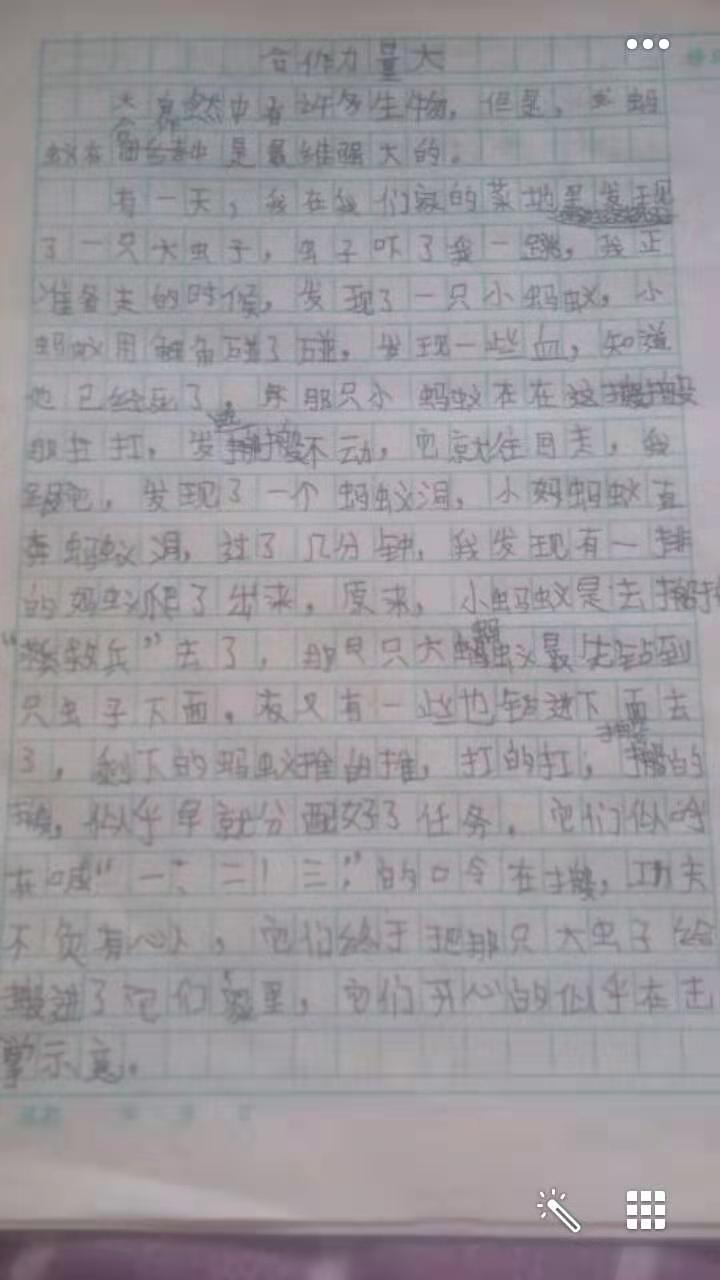 合作力量大
大自然中有许多生物，但是，蚂
蚁在合作中是最强大的。
有一天，我在我们家的菜地里发现
了一只大虫子，虫子吓了我一跳，我正
准备走的时候，发现了一只小蚂蚁，小
蚂蚁用触角碰了碰，发现一些血，知道
他已经死了，那只小蚂蚁在这搬搬
那扛扛，发搬不动，它就往回走，我
跟它，发现了一个蚂蚁洞，小蚂蚁直
奔蚂蚁洞，过了几分钟，我发现有一排
的蚂蚁爬了出来，原来，小蚂蚁是去搬
“救兵”去了，那只大蚂蚁最先钻到
只虫子下面，又有一些也钻进下面去
了，剩下的蚂蚁推的推，扛的扛，搬的
搬，似乎早就分配好了任务，它们似乎
在喊“一！二！三！”的口令在搬，功夫
不负有心人，它们终于把那只大虫子给
搬进了它们家里，它们开心的似乎在击
掌示意。